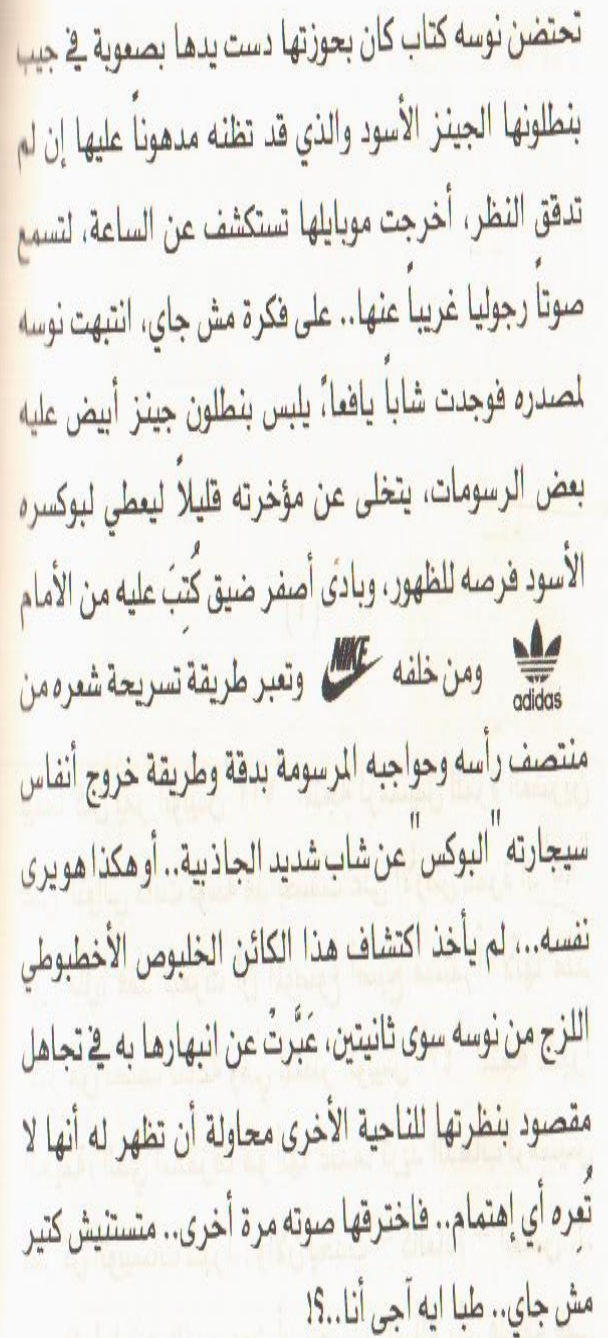 تحتضن نوسه كتاب كان بحوزتها دست يدها بصعوبة في جيب
بنطلونها الجينز الأسود والذي قد تظنه مدهوناً عليها إن لم
تدقق النظر، أخرجت موبايلها تستكشف عن الساعة، لتسمع
صوتاً رجوليا غريباً عنها.. على فكرة مش جاي، انتبهت نوسه
لمصدره فوجدت شاباً يافعاً، يلبس بنطلون جينز أبيض عليه
بعض الرسومات، يتخلى عن مؤخرته قليلاً ليعطي لبوكسره
الأسود فرصه للظهور، وبادى أصفر ضيق كُتِبَ عليه من الأمام
adidas ومن خلفه NIKE وتعبر طريقة تسريحة شعره من
منتصف رأسه وحواجبه المرسومة بدقة وطريقة خروج أنفاس
سيجارته "البوكس" عن شاب شديد الجاذبية.. أو هكذا هو يرى
نفسه...، لم يأخذ اكتشاف هذا الكائن الخلبوص الأخطبوطي
اللزج من نوسه سوى ثانيتين، عَبَّرتْ عن انبهارها به في تجاهل
مقصود بنظرتها للناحية الأخرى محاولة أن تظهر له أنها لا
تُعِره أي إهتمام.. فاخترقها صوته مرة أخرى.. متستنيش كتير
مش جاي.. طبا ايه آجى أنا..؟!